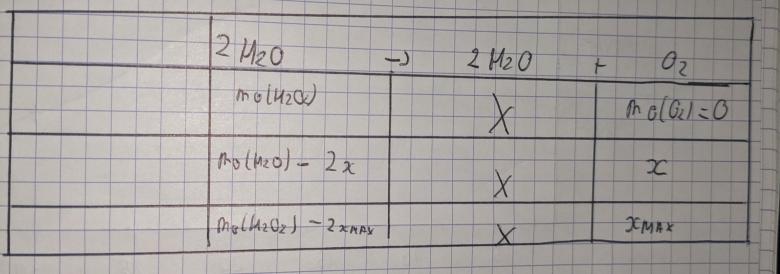 2 H2O → 2 H2O + O2
n0(H2O2) X n0(O2) = 0
n0(H2O) - 2x X x
n0(H2O2) - 2xMAX X xMAX